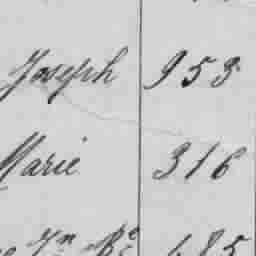 Joseph 953
Marie 316
Jn Bte 485